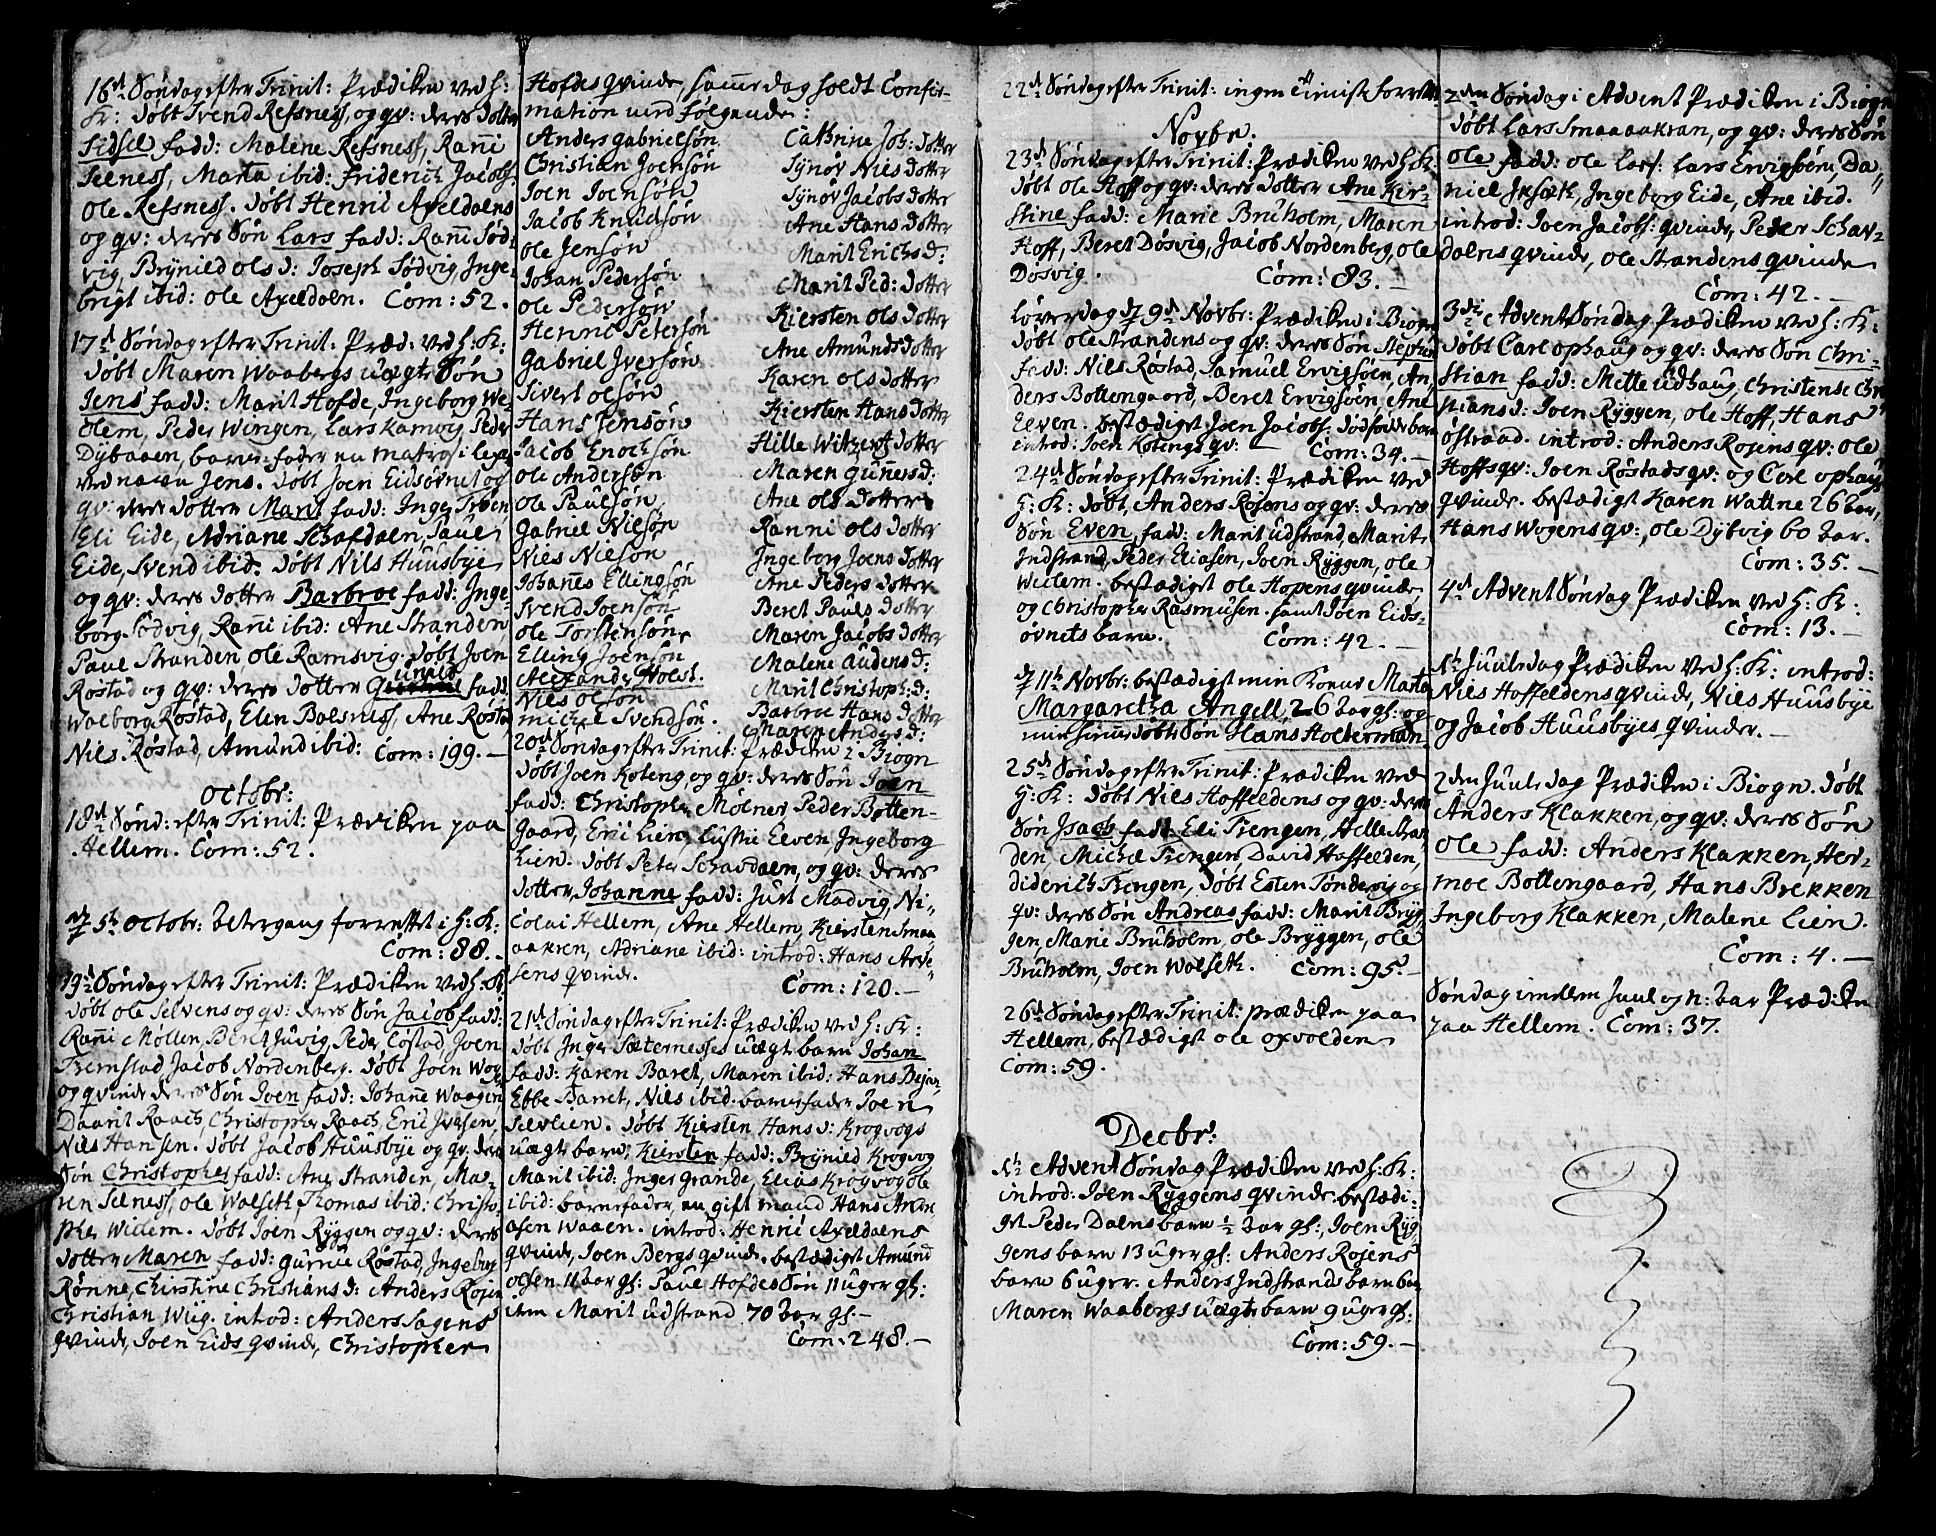 16d Søndag efter Trinit: Prædiken ved H:
K: døbt Svend Refsness, og qv: deres dotter
Sidsel fadd: Malene Refsness, Ranni
Selness, Marta ibid: Friderich Jacobs:
Ole Refsness. døbt Henric Axeldalens
og qv: deres Søn Lars fadd: Ranni Sød-
vig, Brynild ols d: Joseph Sødvig, Inge-
brigt ibid: ole Axeldalen. Com: 52.
17d Søndag efter Trinit: Præd: ved H: K:
døbt Maren Waabergs uægte Søn
Jens fadd: Marit Hofde, Ingeborg We-
olem, Peder Wingen, Lars Kamvig, Peder
Dybaaen, barne fader en matros
ved navn Jens. døbt Joen Eidsøvnet og
qv: deres dotter Marit fadd: Inger Trøen
Eli Eide, Adriane Schafdalen, Paul
Eide, Svend ibid: døbt Nils Huusbye
og qv: deres dotter Barbroe fadd: Inge-
borg Sødvig, Ranni ibid: Ane Stranden
Paul Stranden ole Ramsvig. døbt Joen
Røstad og qv: deres dotter fadd:
Walborg Røstad, Elen Balsness, Ane Røstad
Nils Røstad, Amund ibid: Com: 199.
Octobr:
18d Sønd: efter Trinit: Prædiken paa
Hellem. Com: 52.
d 5t Octobr: betergang forrettet i H: K:
Com: 88.
19d Søndag efter Trinit: Prædiken ved H: K:
døbt ole Selvens og qv: deres Søn Jacob fadd:
Ranni Møllen Beret Juvig, Peder Costad, Joen
Fremstad Jacob Nordenberg. døbt Joen Wog
og qvinde deres Søn Joen fadd: Johanne Waagen
Daarit Raach, Christopher Raach, Eric Iversen,
Nils Hansen. døbt Jacob Huusbye og qv: deres
Søn Christopher fadd: Ane Stranden, Ma-
ren Selness, ole Walseth Thomas ibid: Christo-
pher Wiclem. døbt Joen Ryggen og qv: deres
dotter Maren fadd: Gurrue Røstad, Ingeborg
Rønne, Christine Christians d: Anders Rosen
Christian Wiig. introd: Anders Sagens
qvinde, Joen Eids qvinde, Christopher
Hofdes qvinde, samme dag holdt Confir-
mation med følgende:
Anders Gabrielsøn Cathrine Joh: dotter
Christian Joensøn Synøv Nies dotter
Joen Joensøn Synøv Jacobs dotter
Jacob Knudsøn Ane Hans dotter
Ole Jensøn Marit Erichs d:
Johan Pedersøn Marit Ped: dotter
Ole Pedersøn Kiersten Ols dotter
Henric Petersøn Ane Amunds dotter
Gabriel Iversøn Karen Ols dotter
Sivert Olsøn Kiersten Hans dotter
Hans Jensøn Hille Witzert dotter
Jacob Enochsøn Maren Guners d:
Ole Andersøn Ane Ols dotter
Ole Paulsøn Ranni Ols dotter
Gabriel Nilsøn Ingeborg Joens dotter
Nies Nilsøn Ane Peders dotter
Johannes Ellingsøn Beret Pauls dotter
Svend Joensøn Maren Jacobs dotter
Ole Torstensøn Malene Audens d:
Elling Joensøn Marit Christoph: d:
Alexander Holst. Barbroe Hans dotter
Nies Olsøn Maren Anders d:
Michel Svendsøn.
20d Søndag efter Trinit: Prædiken i Biogn
døbt Joen Koteng, og qv: deres Søn Joen
fadd: Christopher Mølner Peder Botten-
gaard, Eric Lien, Lussie Elven Ingeborg
Lien. døbt Peter Schavdalen, og qv: deres
dotter Johanne fadd: Just Madvig, Ni-
colai Hellem, Ane Hellem, Kiersten Smaa
aakren, Adriane ibid: introd: Hans Arve-
sens qvinde. Com: 120.
21d Søndag efter Trinit: Prædiken ved H: K:
døbt Inger Sæternesses uægte barn Johan
fadd: Karen Baret, Maren ibid: Hans
Ebbe Baret, Nils ibid: barnefader Joen
Selvlien. døbt Kiersten Hans d: Krogvogs
uægte barn, Kiersten fadd: Brynild Krogvog
Marit ibid: Inger Grande, Elias Krogvog ole
ibid: barnefader en gift mand Hans Andri
asen Waaen. introd: Henric Axeldalens
qvinde, Joen Bergs qvinde. bestædiget Amund
olsen 11 aar gl: Paul Hofdes Søn 11 uger gl:
item Marit Udstrand 70 aar gl.
Com: 248.
22d Søndag efter Trinit: ingen tieniste forrettet
Novbr.
23d Søndag efter Trinit: Prædiken ved H: K:
døbt ole Hoff og qv: deres dotter Ane Kir-
stine fadd: Marie Bruholm, Maren
Hoff, Beret Døsvig, Jacob Nordenberg, ole
Døsvig. Com: 83.
Løverdag d 9d Novbr: Prædiken i Biogn
døbt ole Strandens og qv: deres Søn Stephen
fadd: Nils Røstad, Samuel Ervigsøen, An-
ders Bottengaard, Beret Ervigsøen, Ane
Elven. bestædiget Joen Jacobs: dødfødde barn
introd: Joen Kotengs qv: Com: 34.
24d Søndag efter Trinit: Prædiken ved
H: K: døbt Anders Rosens og qv: deres
Søn Even, fadd: Marit Udstrand, Marit
Indstrand, Peder Eliasen, Joen Ryggen, ole
Weclem. bestædiget ole Hopens qvinde
og Christopher Rasmusen. samt Joen Eids-
øvnets barn. Com: 42.
d 11t Novbr: bestædiget min Konne Marta
Margaretha Angell, 26 aar gl: og
min hiemmedøbte Søn Hans Holterman.
25d Søndag efter Trinit: Prædiken ved
H: K: døbt Nils Hoffeldens og qv: deres
Søn Isach fadd: Eli Trengen, Helle Stran
den, Michel Trengen, David Hoffelden,
Diderich Trengen, døbt Esten Tøndevig og
qv: deres Søn Andreas fadd: Marit Bryg-
gen, Marie Bruholm, ole Bryggen, ole
Bruholm, Joen Walseth. Com: 95.
26d Søndag efter Trinit: prædiken paa
Hellem, bestædiget ole Oxvolden
Com: 59.
Decbr:
1t Advent Søndag Prædiken ved H: K:
introd: Joen Ryggens qvinde. bestædi-
get Peder Dalens barn ½ aar gl: Joen Ryg
gens barn 13 uger gl: Anders Rosens
barn 6 uger. Anders Indstrands barn
Maren Waabergs uægte barn 9 uger gl:
Com: 59.
2den Søndag i Advent Prædiken i Biogn
døbt Lars Smaaaakran, og qv: deres Søn
Ole fadd: ole Lars: Lars Ervigsøen, Da-
niel, Ingeborg Eide, Ane ibid.
introd: Joen Jacobs: qvinde, Peder Schav-
dalens qvinde, ole Strandens qvinde
Com: 42.
3die Advent Søndag Prædiken ved H: K:
døbt Carl Ophaug og qv: deres Søn Chri-
stian fadd: Mette Udhaug, Christense Chri
stians d: Joen Ryggen, ole Hoff, Hans
Østraad. introd: Anders Rosens qv: ole
Hoffs qv: Joen Røstads qv: og Carl Ophaugs
qvinde. bestædiget Karen Wattne 26 aar,
Hans Wogens qv:, ole Dybvig 60 aar.
Com: 35.
4d Advent Søndag Prædiken ved H: K:
Com: 13.
1t Juuledag Prædiken ved H: K: introd:
Nils Hoffeldens qvinde, Nils Huusbye
og Jacob Huusbyes qvinder.
2den Juuledag Prædiken i Biogn. døbt
Anders Klakken, og qv: deres Søn
Ole fadd: Anders Klakken, Her-
moe Bottengaard, Hans Brekken
Ingeborg Klakken, Malene Lien.
Com: 4.
Søndag imellem Juul og n: aar Prædiken
paa Hellem. Com: 37.